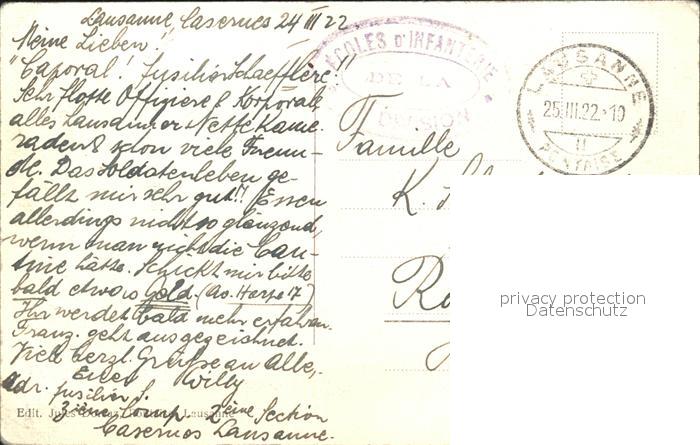 Lausanne Casernes 24 III 22
Meine Lieben!!
"Caporal! Fusilier Schaefflere!"
Sehr flotte Offiziere & Korporale
alles Lausanner Nette Kame-
raden & schon viele Freun-
de. Das Soldatenleben ge-
fällt mir sehr gut!! Essen
allerdings nicht so glänzend,
wenn man nicht die Can-
tine hätte. Schickt mir bitte
bald etwas Geld. (
Ihr werdet bald mehr erfahren
Franz. geht ausgezeichnet.
Viele herzl. Grüsse an Alle,
Euer Willy
Adr. fusilier S.
3ième Comp 2eine Section
Casernes Lausanne.
Edit. Lausanne
ÉCOLES D'INFANTERIE
DE LA
DIVISION
LAUSANNE
25.III.22.-10
II
Famille
K.
privacy protection
Datenschutz